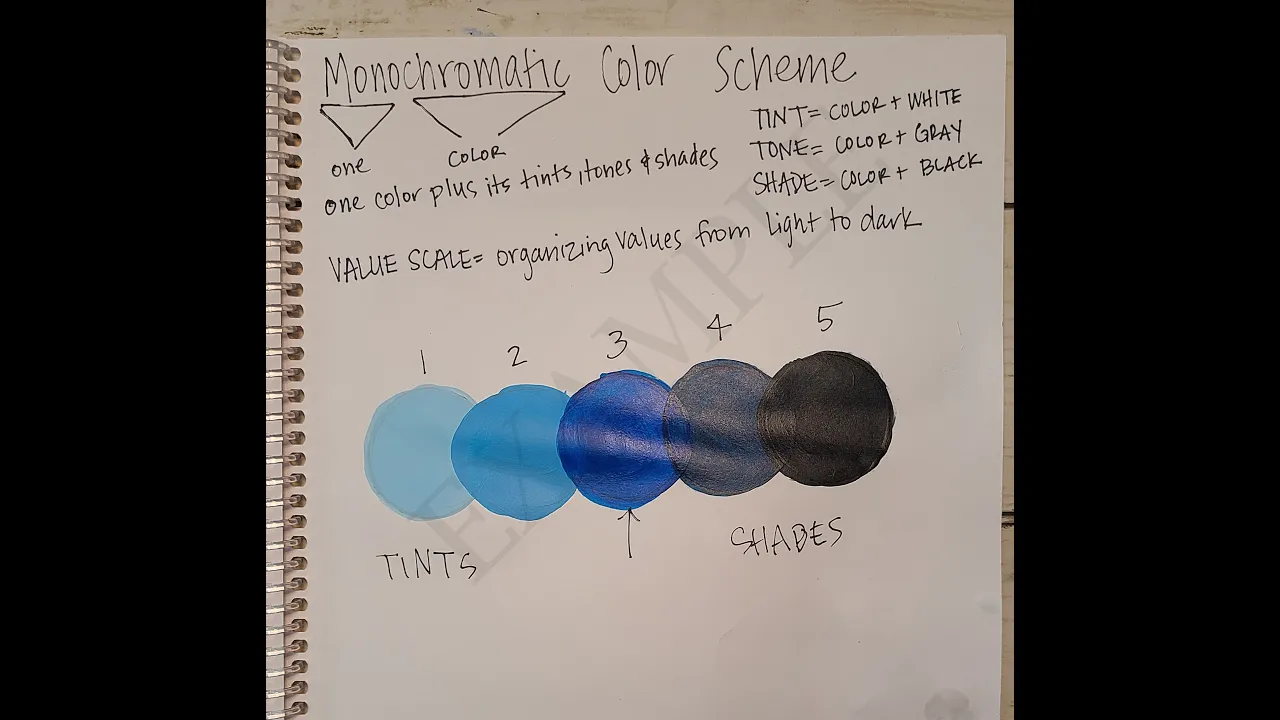 Monochromatic Color Scheme
one
COLOR
one color plus its tints, tones & shades
TINT= COLOR + WHITE
TONE= COLOR + GRAY
SHADE= COLOR + BLACK
VALUE SCALE= organizing values from light to dark
1 2 3 4 5
TINTS
SHADES
EXAMPLE